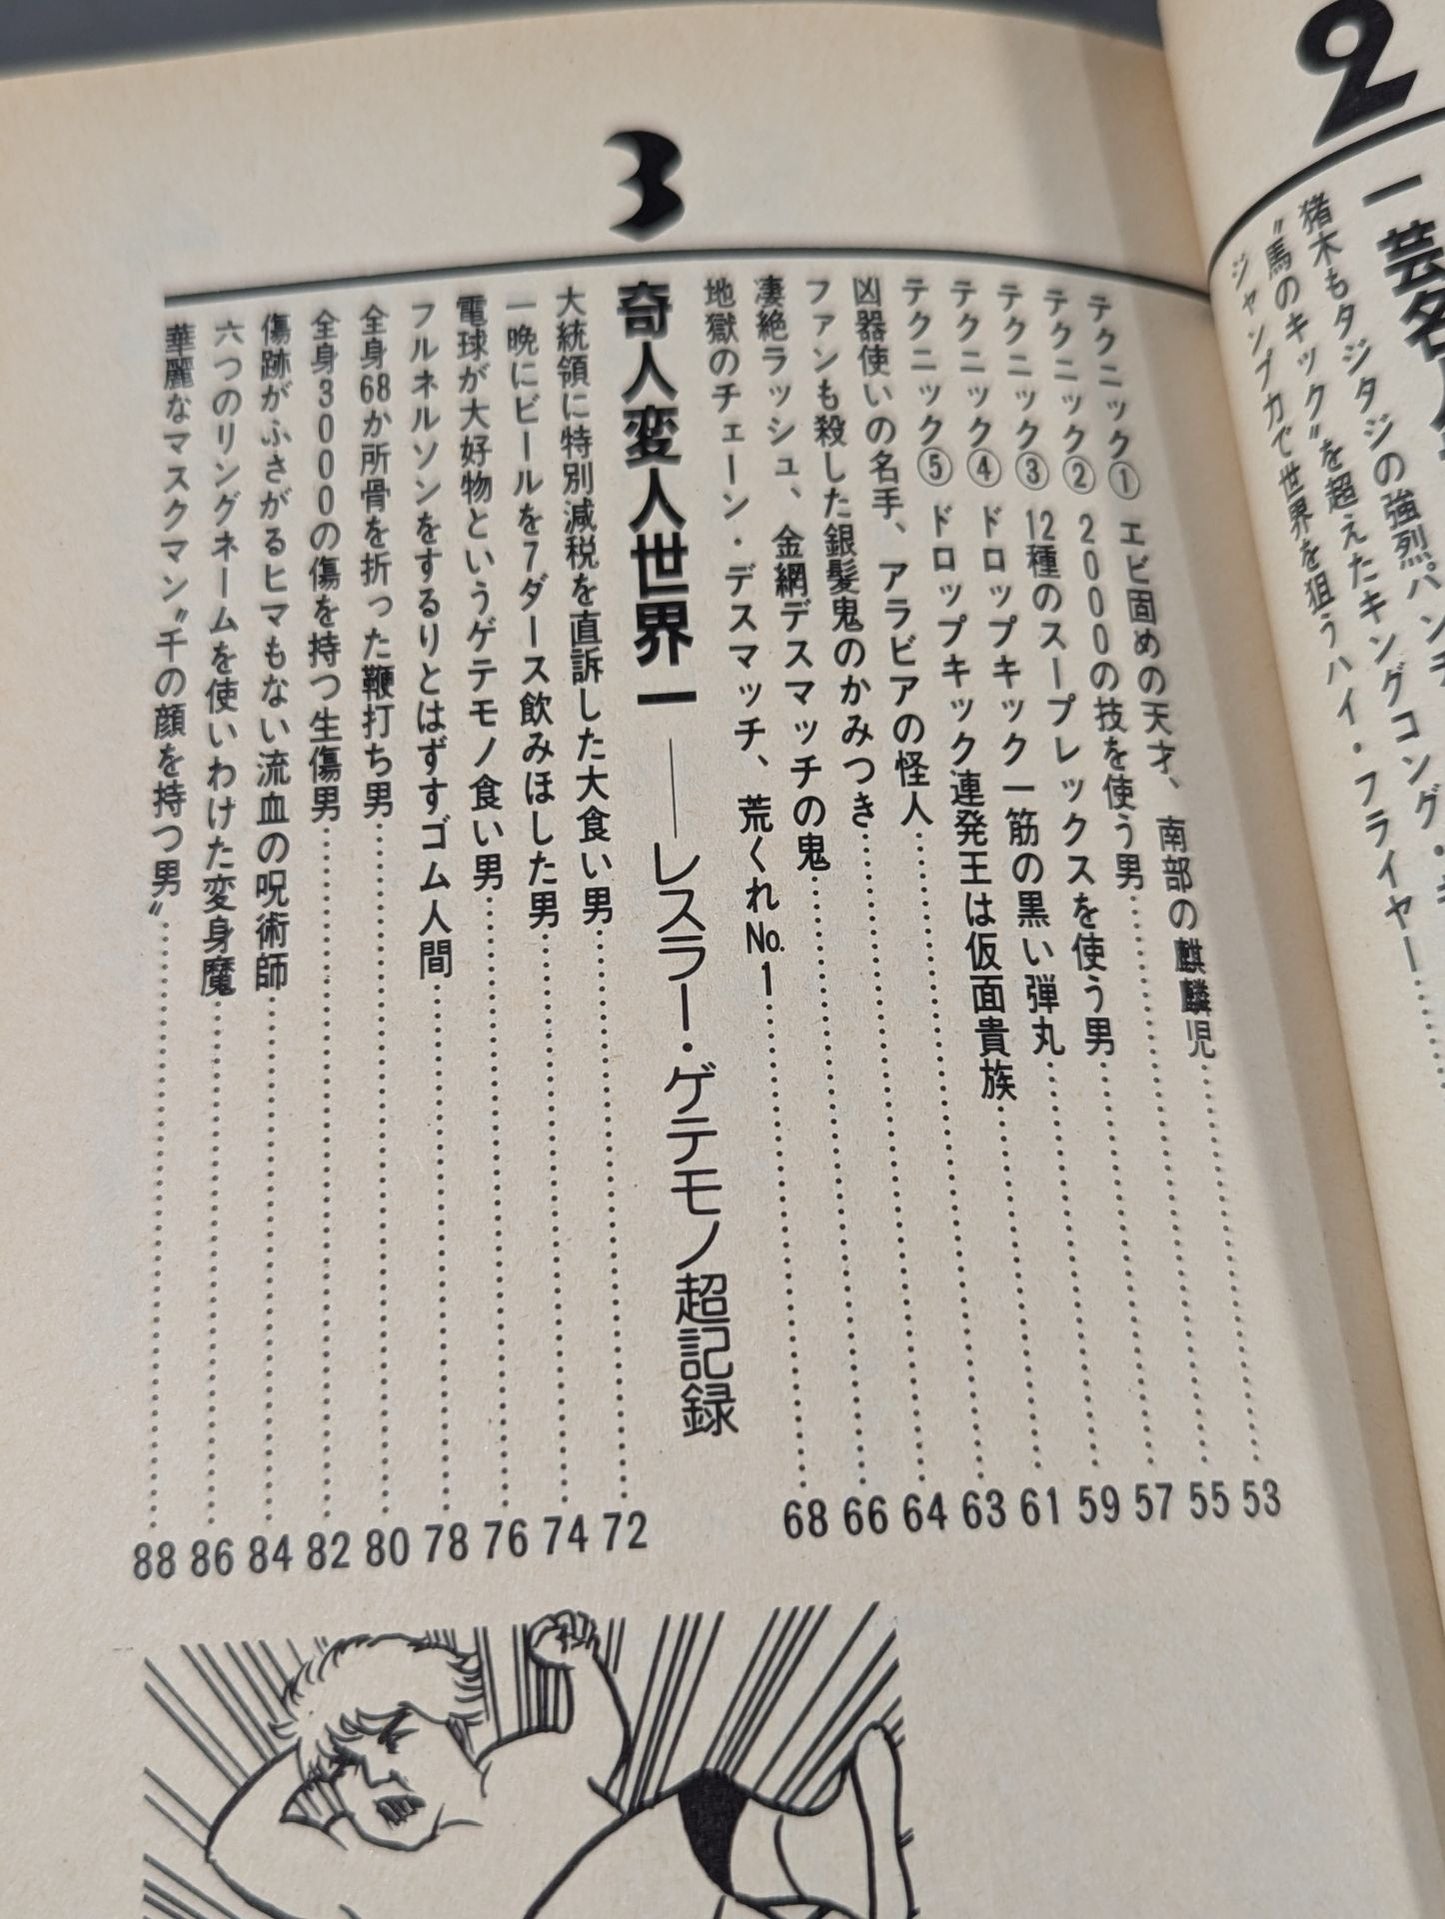 2
猪木もタジタジの強烈パンチ
〝馬のキック〟を超えたキングコング・
ジャンプ力で世界を狙うハイ・フライヤー……
テクニック① エビ固めの天才、南部の麒麟児……53
テクニック② 2000の技を使う男……55
テクニック③ 12種のスープレックスを使う男……57
テクニック④ ドロップキック一筋の黒い弾丸……59
テクニック⑤ ドロップキック連発王は仮面貴族……61
凶器使いの名手、アラビアの怪人……63
ファンも殺した銀髪鬼のかみつき……64
凄絶ラッシュ、金網デスマッチの鬼……66
地獄のチェーン・デスマッチ、荒くれNo.1……68
3
奇人変人世界一——レスラー・ゲテモノ超記録
大統領に特別減税を直訴した大食い男……72
一晩にビールを7ダース飲みほした男……74
電球が大好物というゲテモノ食い男……76
フルネルソンをするりとはずすゴム人間……78
全身68か所骨を折った鞭打ち男……80
全身3000の傷を持つ生傷男……82
傷跡がふさがるヒマもない流血の呪術師……84
六つのリングネームを使いわけた変身魔……86
華麗なマスクマン〝千の顔を持つ男〟……88